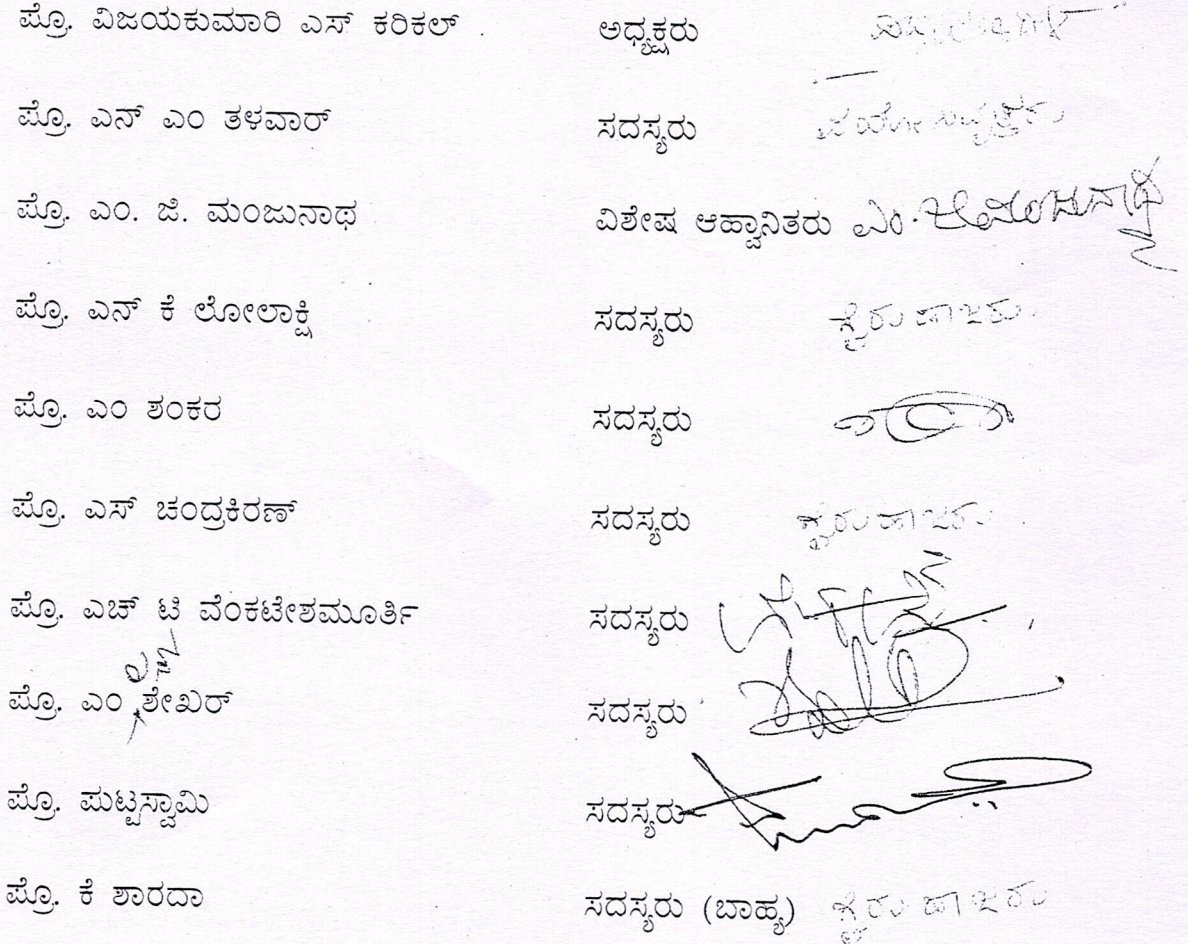 ಪ್ರೊ. ವಿಜಯಕುಮಾರಿ ಎಸ್ ಕರಿಕಲ್ ಅಧ್ಯಕ್ಷರು
ಪ್ರೊ. ಎನ್ ಎಂ ತಳವಾರ್ ಸದಸ್ಯರು
ಪ್ರೊ. ಎಂ. ಜಿ. ಮಂಜುನಾಥ ವಿಶೇಷ ಆಹ್ವಾನಿತರು ಎಂ.ಜಿ.ಮಂಜುನಾಥ
ಪ್ರೊ. ಎನ್ ಕೆ ಲೋಲಾಕ್ಷಿ ಸದಸ್ಯರು ಗೈರು ಹಾಜರು
ಪ್ರೊ. ಎಂ ಶಂಕರ ಸದಸ್ಯರು
ಪ್ರೊ. ಎಸ್ ಚಂದ್ರಕಿರಣ್ ಸದಸ್ಯರು ಗೈರು ಹಾಜರು
ಪ್ರೊ. ಎಚ್ ಟಿ ವೆಂಕಟೇಶಮೂರ್ತಿ ಸದಸ್ಯರು
ಪ್ರೊ. ಎಂ ಎನ್ ಶೇಖರ್ ಸದಸ್ಯರು
ಪ್ರೊ. ಪುಟ್ಟಸ್ವಾಮಿ ಸದಸ್ಯರು
ಪ್ರೊ. ಕೆ ಶಾರದಾ ಸದಸ್ಯರು (ಬಾಹ್ಯ) ಗೈರು ಹಾಜರು